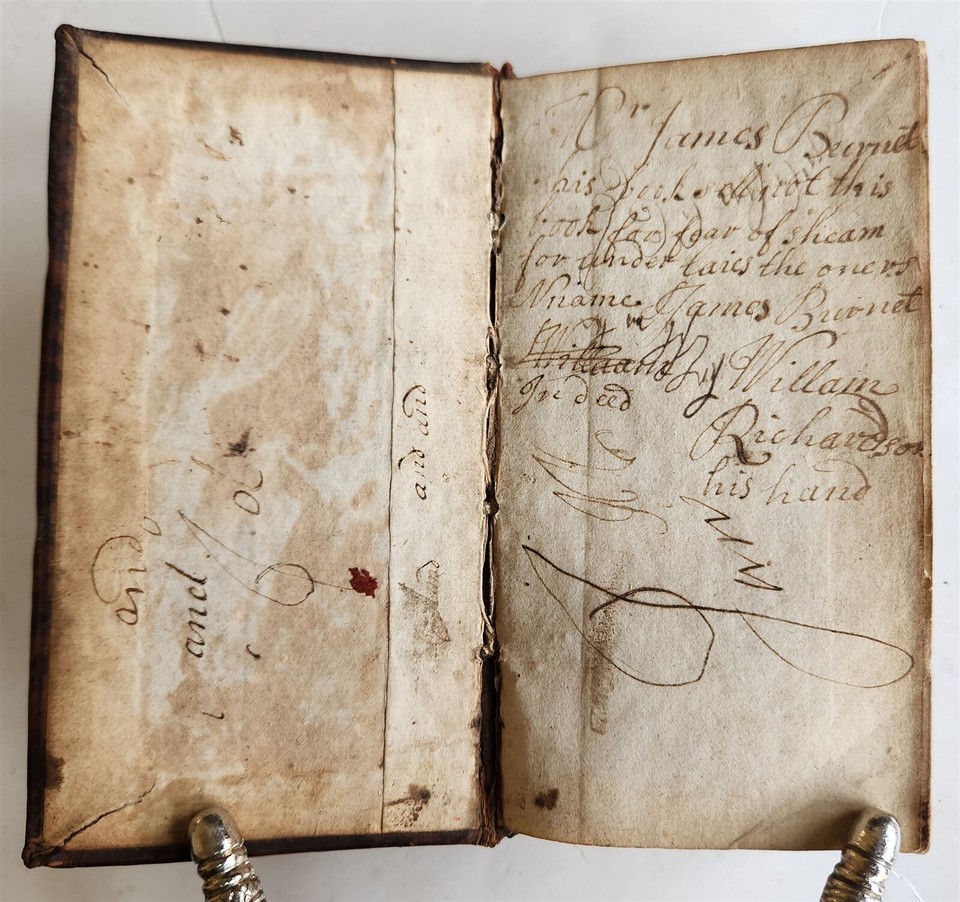 and
and
and and
and
Mr James Burnet
his book sell not this
book for fear of sheam
for under laies the oners
Nname James Burnet
William By Willam
Indeed
Richardson
his hand